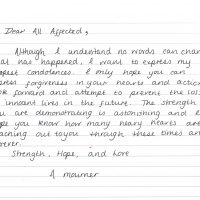 Dear All Affected,
Although I understand no words can chan
at has happened, I want to express my
epest condolences. I only hope you can
press forgiveness in your hearts and action
ok forward and attempt to prevent the los
innocent lives in the future. The strength
ou are demonstrating is astonishing and I
pe you know how many heavy hearts are
aching out to you through these times an
orever.
Strength, Hope, and Love
A mourner